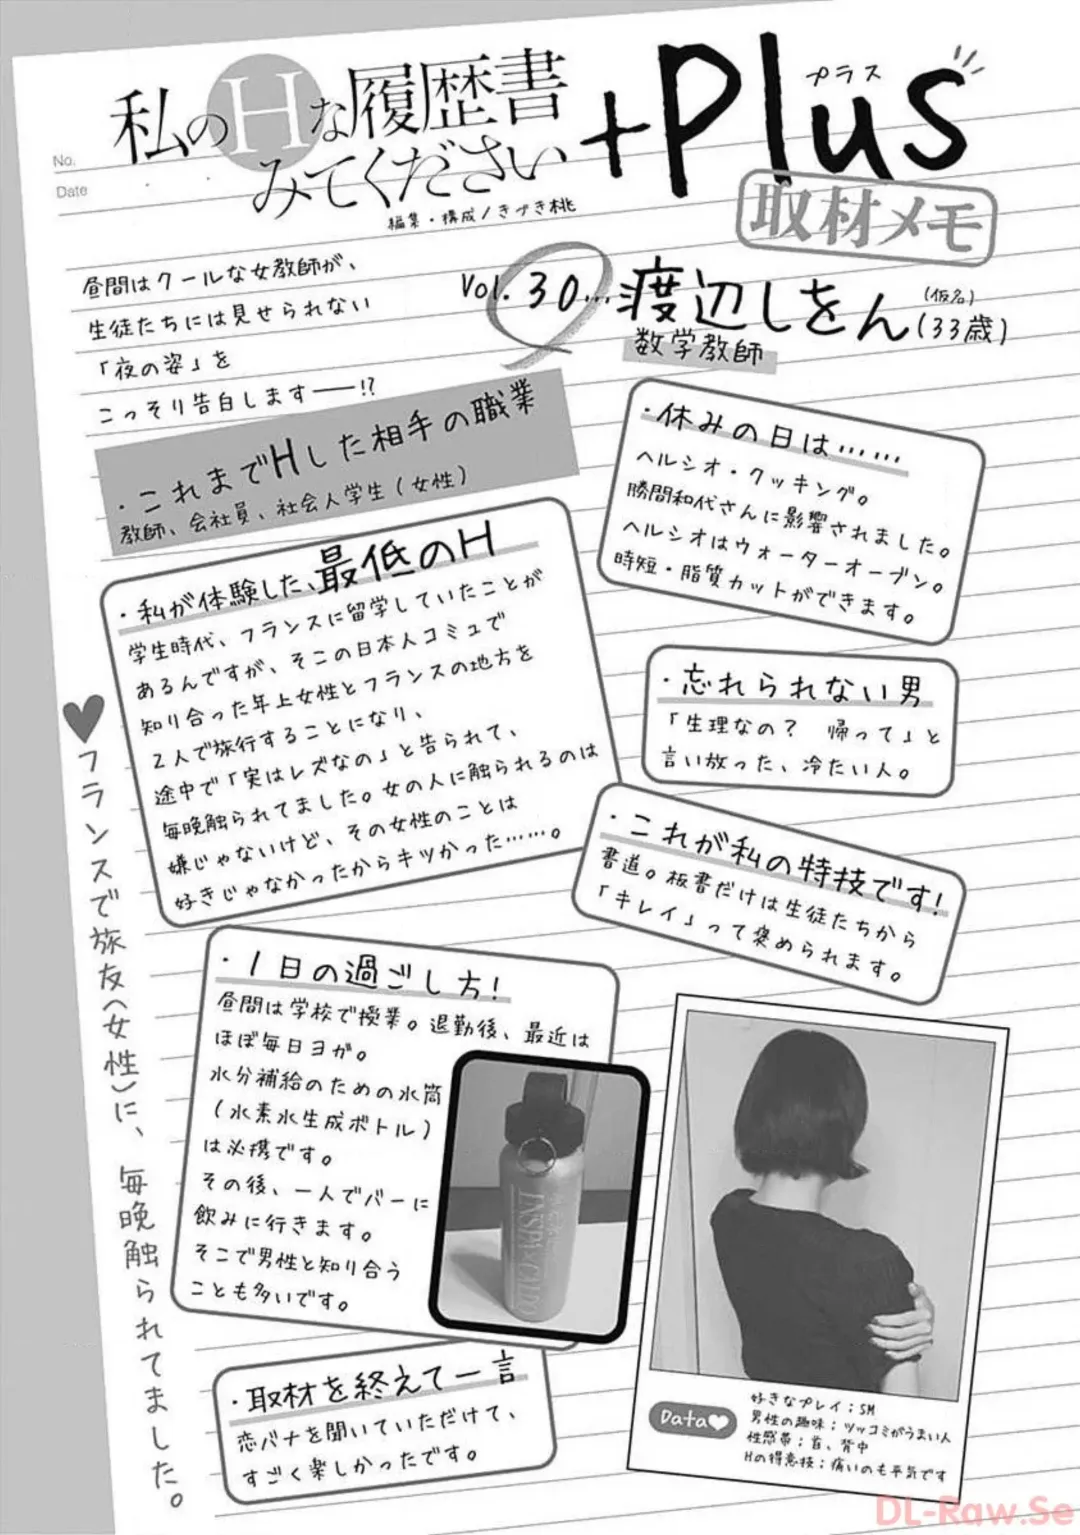 No.
Date
私のHな履歴書
みてください
+Plus
プラス
編集・構成/きづき桃
取材メモ
昼間はクールな女教師が、
生徒たちには見せられない
「夜の姿」を
こっそり告白します──!?
Vol.30…渡辺しをん(33歳)
(仮名)
数学教師
・これまでHした相手の職業
教師、会社員、社会人学生(女性)
・休みの日は……
ヘルシオ・クッキング。
勝間和代さんに影響されました。
ヘルシオはウォーターオーブン。
時短・脂質カットができます。
・私が体験した、最低のH
学生時代、フランスに留学していたことが
あるんですが、そこの日本人コミュで
知り合った年上女性とフランスの地方を
2人で旅行することになり、
途中で「実はレズなの」と告られて、
毎晩触られてました。女の人に触られるのは
嫌じゃないけど、その女性のことは
好きじゃなかったからキツかった……。
・忘れられない男
「生理なの? 帰って」と
言い放った、冷たい人。
・これが私の特技です!
書道。板書だけは生徒たちから
「キレイ」って褒められます。
♥フランスで旅友(女性)に、毎晩触られてました。
・1日の過ごし方!
昼間は学校で授業。退勤後、最近は
ほぼ毎日ヨガ。
水分補給のための水筒
(水素水生成ボトル)
は必携です。
その後、一人でバーに
飲みに行きます。
そこで男性と知り合う
ことも多いです。
・取材を終えて一言
恋バナを聞いていただけて、
すごく楽しかったです。
Data♥
好きなプレイ;SM
男性の趣味;ツッコミがうまい人
性感帯;首、背中
Hの得意技;痛いのも平気です
DL-Raw.Se